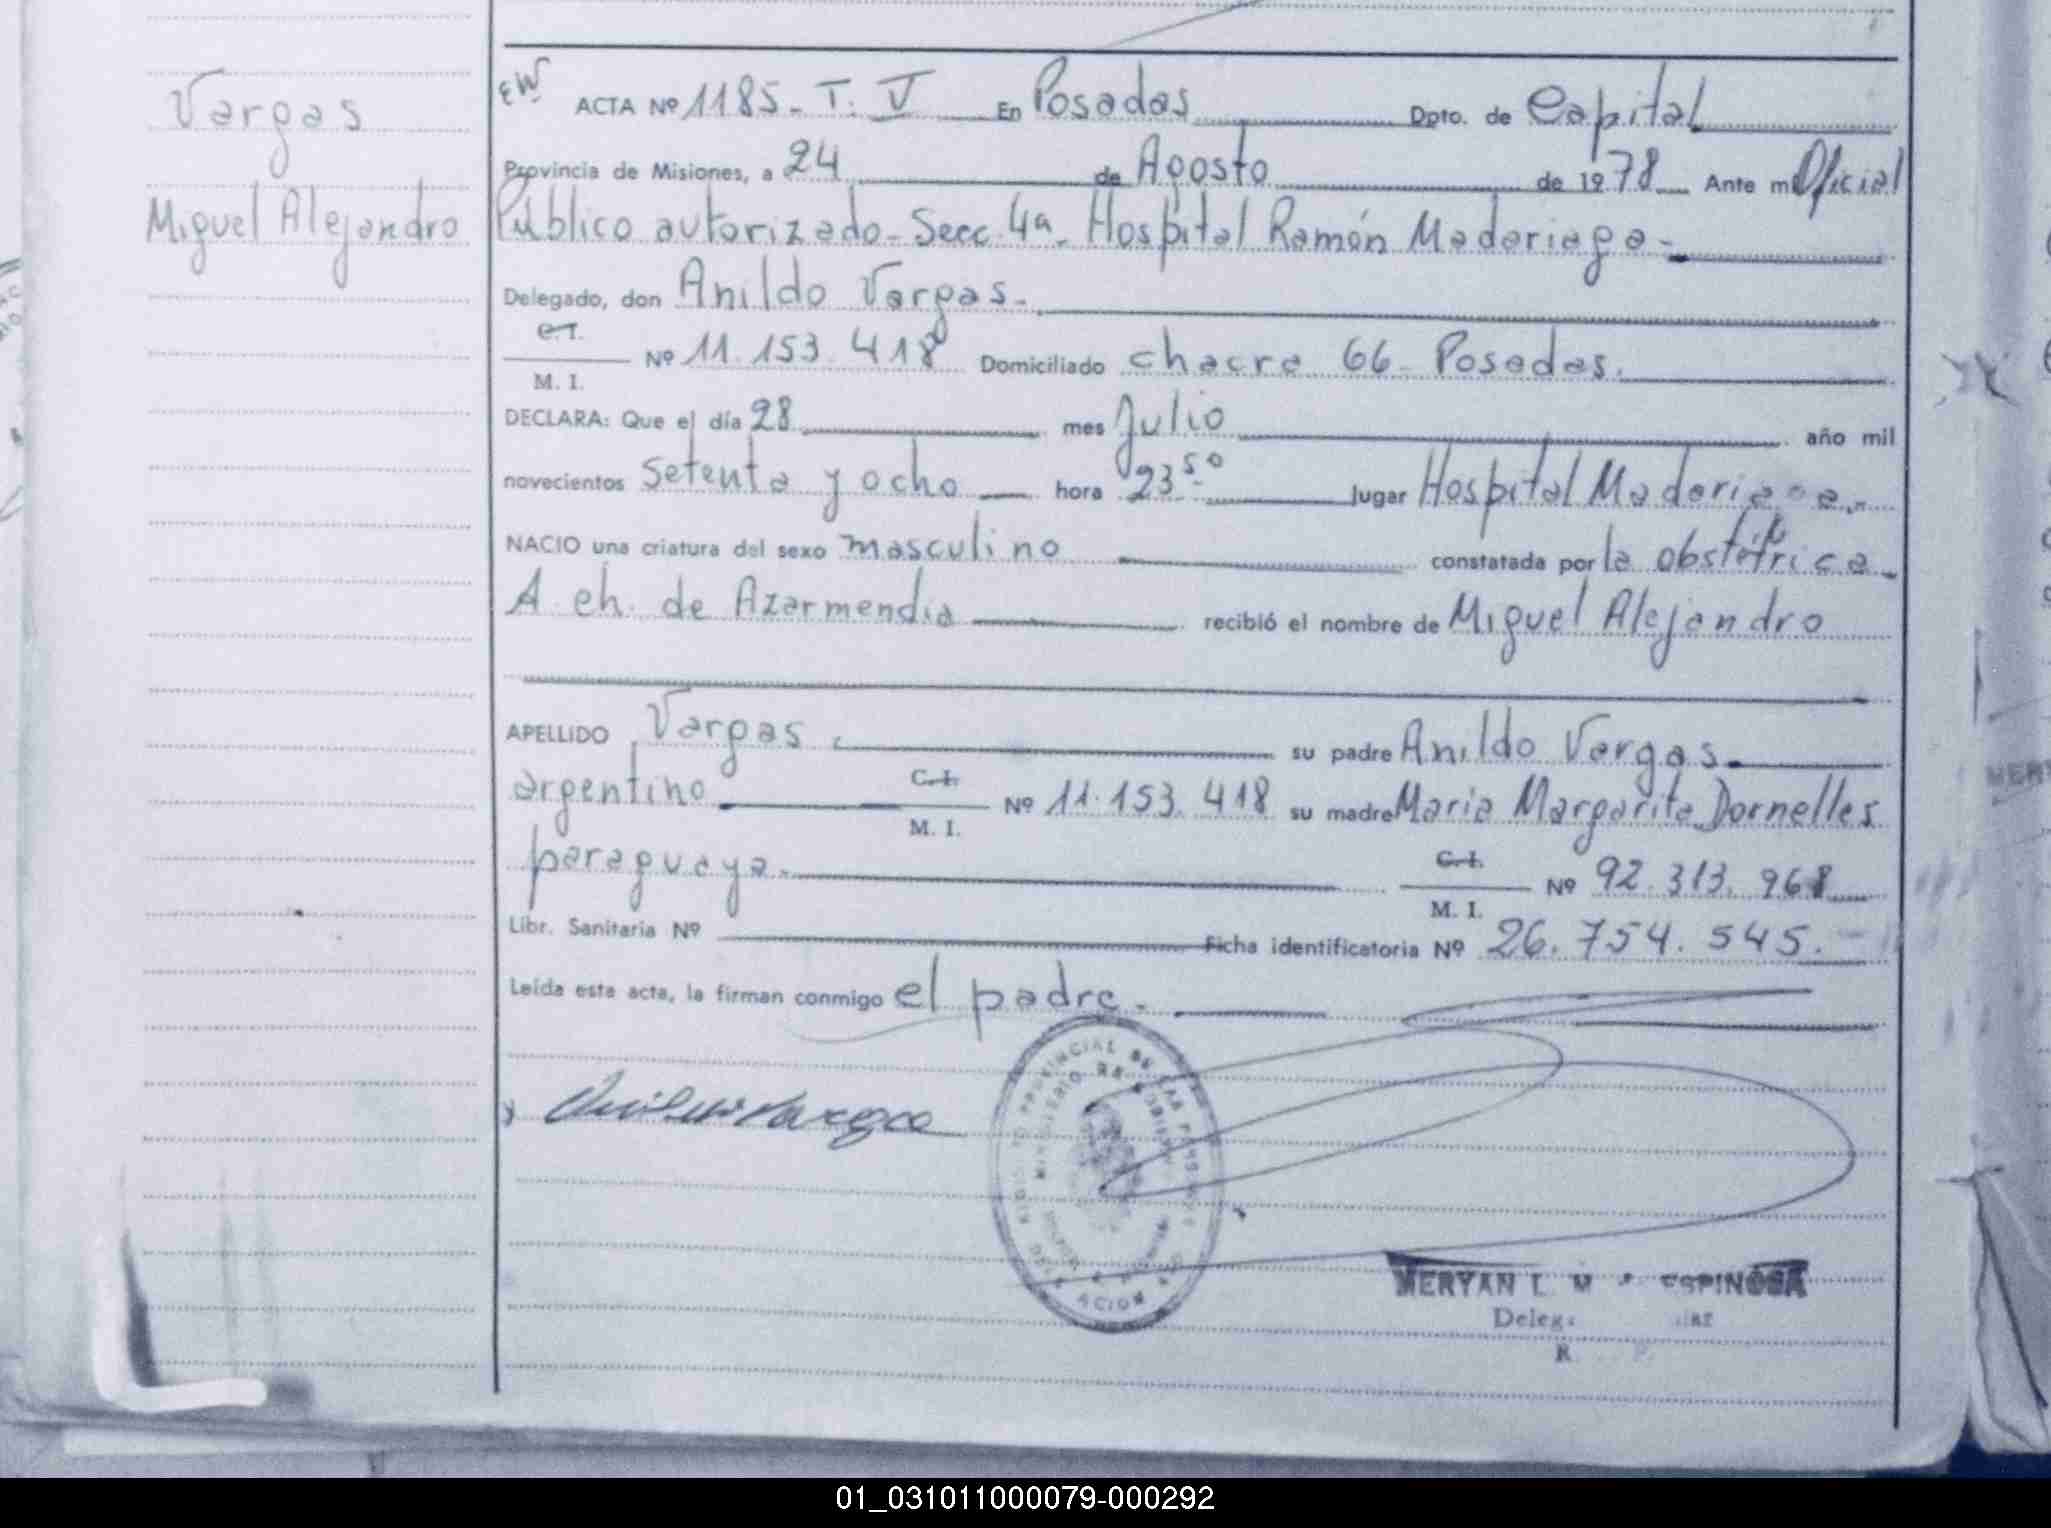 Vargas
Miguel Alejandro
ACTA Nº 1185 - T. V En Posadas Dpto. de Capital
Provincia de Misiones, a 24 de Agosto de 1978 Ante mi Oficial
Público autorizado - Secc. 4ª - Hospital Ramón Madariaga -
Delegado, don Anildo Vargas -
C.I.
M. I. Nº 11.153.418 Domiciliado chacra 66 - Posadas.
DECLARA: Que el día 28 mes Julio año mil
novecientos setenta y ocho hora 23 50 lugar Hospital Madariaga -
NACIO una criatura del sexo masculino constatada por la obstétrica -
A. Ch. de Azarmendia recibió el nombre de Miguel Alejandro
APELLIDO Vargas su padre Anildo Vargas
argentino C.I. M. I. Nº 11.153.418 su madre Maria Margarita Dornelles
paraguaya - C.I. M. I. Nº 92.313.968
Libr. Sanitaria Nº Ficha identificatoria Nº 26.754.545. -
Leída esta acta, la firman conmigo el padre. -
MERYAN L. M ESPINOSA
01_031011000079-000292